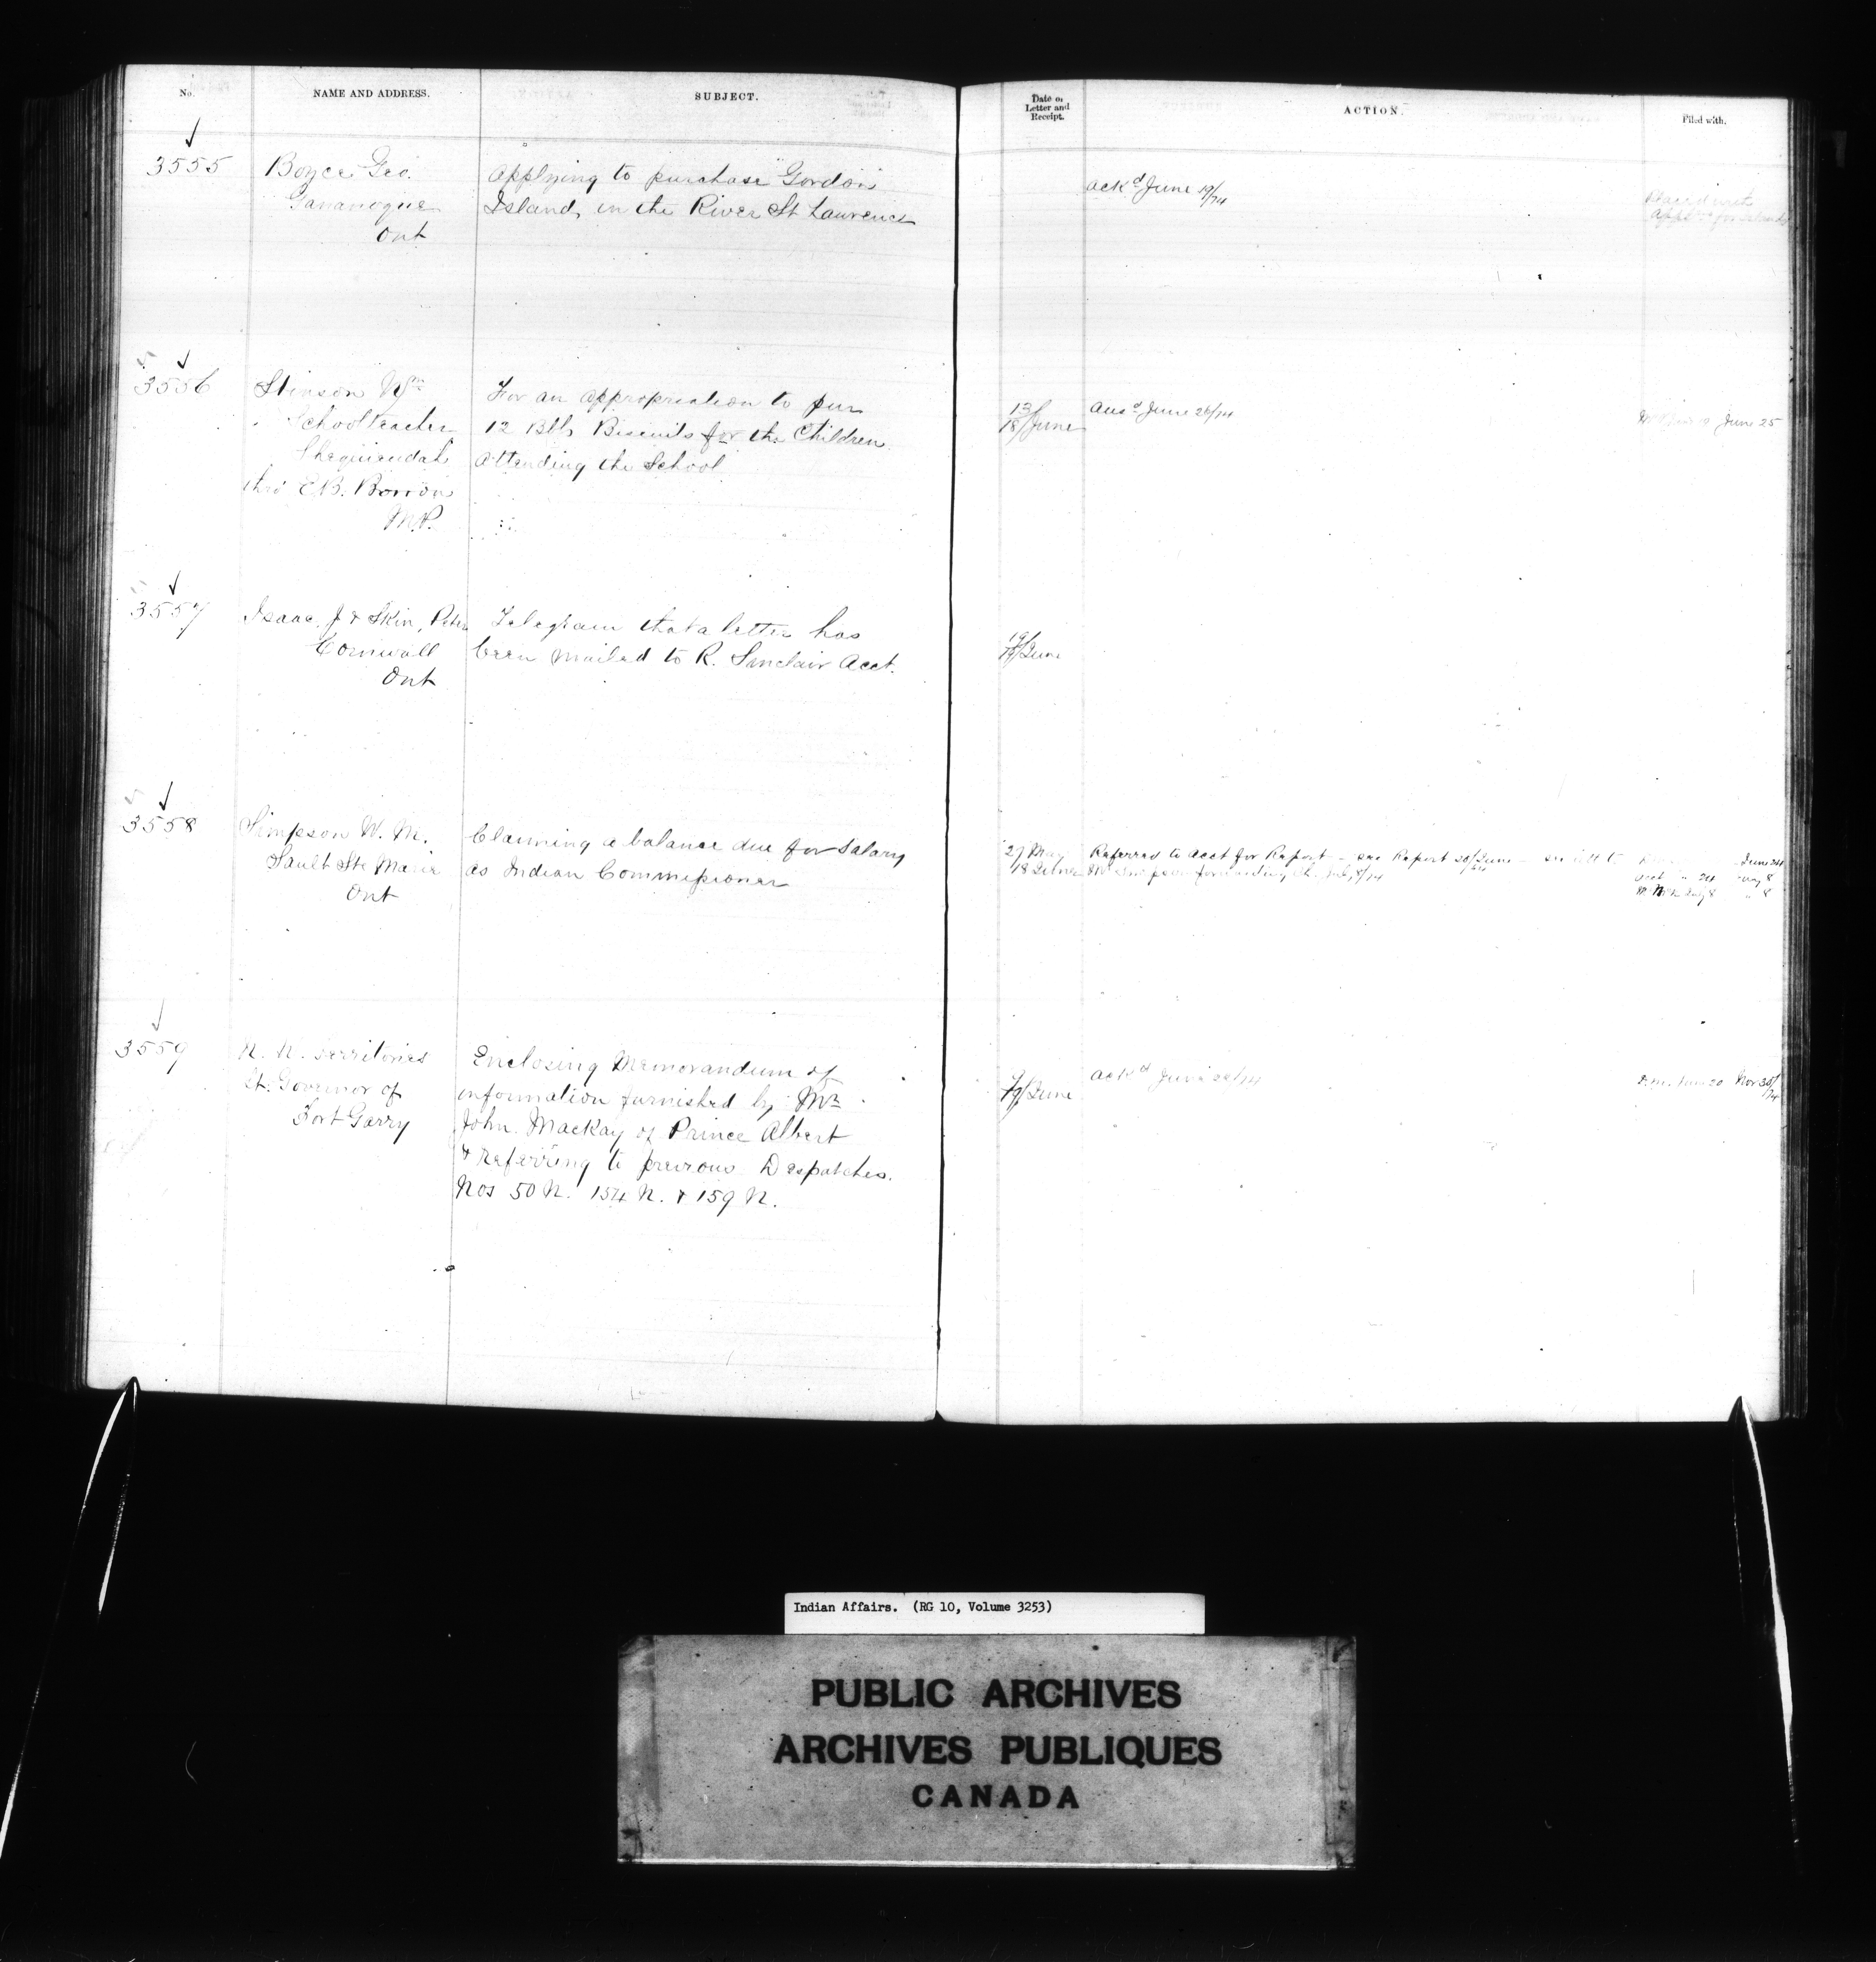 No.
NAME AND ADDRESS.
SUBJECT.
Date of
Letter and
Receipt.
ACTION.
Filed with.
3555
Boyce Geo.
Gananoque
Ont
Applying to purchase Gordon
Island, in the River St Laurence
ackd June 19/74
Placed with
for Islands
3556
Stinson Wm
School teacher
Sheguiendah
thro' E.B. Borron
M.P.
For an appropriation to pur
12 Blls Biscuits for the Children
attending the School
13/
18/June
ansd June 26/74
June 25
3557
Isaac, J & Skin, Peter
Cornwall
Ont
Telegram that a letter has
been mailed to R. Sinclair Acct.
19/
19/June
3558
Simpson W. M.
Sault Ste Marie
Ont
Claiming a balance due for Salary
as Indian Commissioner
27 May
18 June
Referred to Acct for Report - see Report 20/June - see lett to
Mr Simpson forwarding
June 24
3559
N. W. Territories
Lt. Governor of
Fort Garry
Enclosing Memorandum of
information furnished by Mr
John MacKay of Prince Albert
& Referring to previous Despatches.
Nos 50 N. 154 N. & 159 N.
/June
ackd June
June 20 Nov 30/74
Indian Affairs. (RG 10, Volume 3253)
PUBLIC ARCHIVES
ARCHIVES PUBLIQUES
CANADA